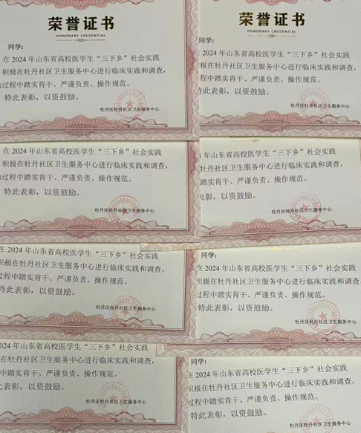 荣誉证书
HONORARY CREDENTIAL
同学:
在2024年山东省高校医学生“三下乡”社会实践
积极在牡丹社区卫生服务中心进行临床实践和调查,
过程中踏实肯干、严谨负责、操作规范。
特此表彰,以资鼓励。
牡丹区牡丹社区卫生服务中心
荣誉证书
HONORARY CREDENTIAL
同学:
在2024年山东省高校医学生“三下乡”社会实践
积极在牡丹社区卫生服务中心进行临床实践和调查,
程中踏实肯干、严谨负责、操作规范。
特此表彰,以资鼓励。
牡丹区牡丹社区卫生服务中心
在2024年山东省高校医学生“三下乡”社会实践
积极在牡丹社区卫生服务中心进行临床实践和调查,
过程中踏实肯干、严谨负责、操作规范。
特此表彰,以资鼓励。
牡丹区牡丹社区卫生服务中心
2024年山东省高校医学生“三下乡”社会实践
极在牡丹社区卫生服务中心进行临床实践和调查,
踏实肯干、严谨负责、操作规范。
此表彰,以资鼓励。
牡丹区牡丹社区卫生服务中心
在2024年山东省高校医学生“三下乡”社会实践
积极在牡丹社区卫生服务中心进行临床实践和调查,
过程中踏实肯干、严谨负责、操作规范。
特此表彰,以资鼓励。
牡丹区牡丹社区卫生服务中心
同学:
在2024年山东省高校医学生“三下乡”社会实践
极在牡丹社区卫生服务中心进行临床实践和调查,
程中踏实肯干、严谨负责、操作规范。
特此表彰,以资鼓励。
牡丹区牡丹社区卫生服务中心
2024年山东省高校医学生“三下乡”社会实践
在牡丹社区卫生服务中心进行临床实践和调查,
中踏实肯干、严谨负责、操作规范。
表彰,以资鼓励。
牡丹区牡丹社区卫生服务中心
同学:
2024年山东省高校医学生“三下乡”社会实践
极在牡丹社区卫生服务中心进行临床实践和调查,
程中踏实肯干、严谨负责、操作规范。
特此表彰,以资鼓励。
牡丹区牡丹社区卫生服务中心